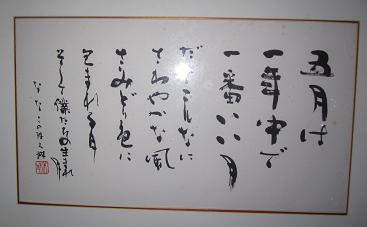 五月は
一年中で
一番いい月
だってこんなに
さわやかな風
さみどり色に
そまれる月
そして僕たちの生まれ月